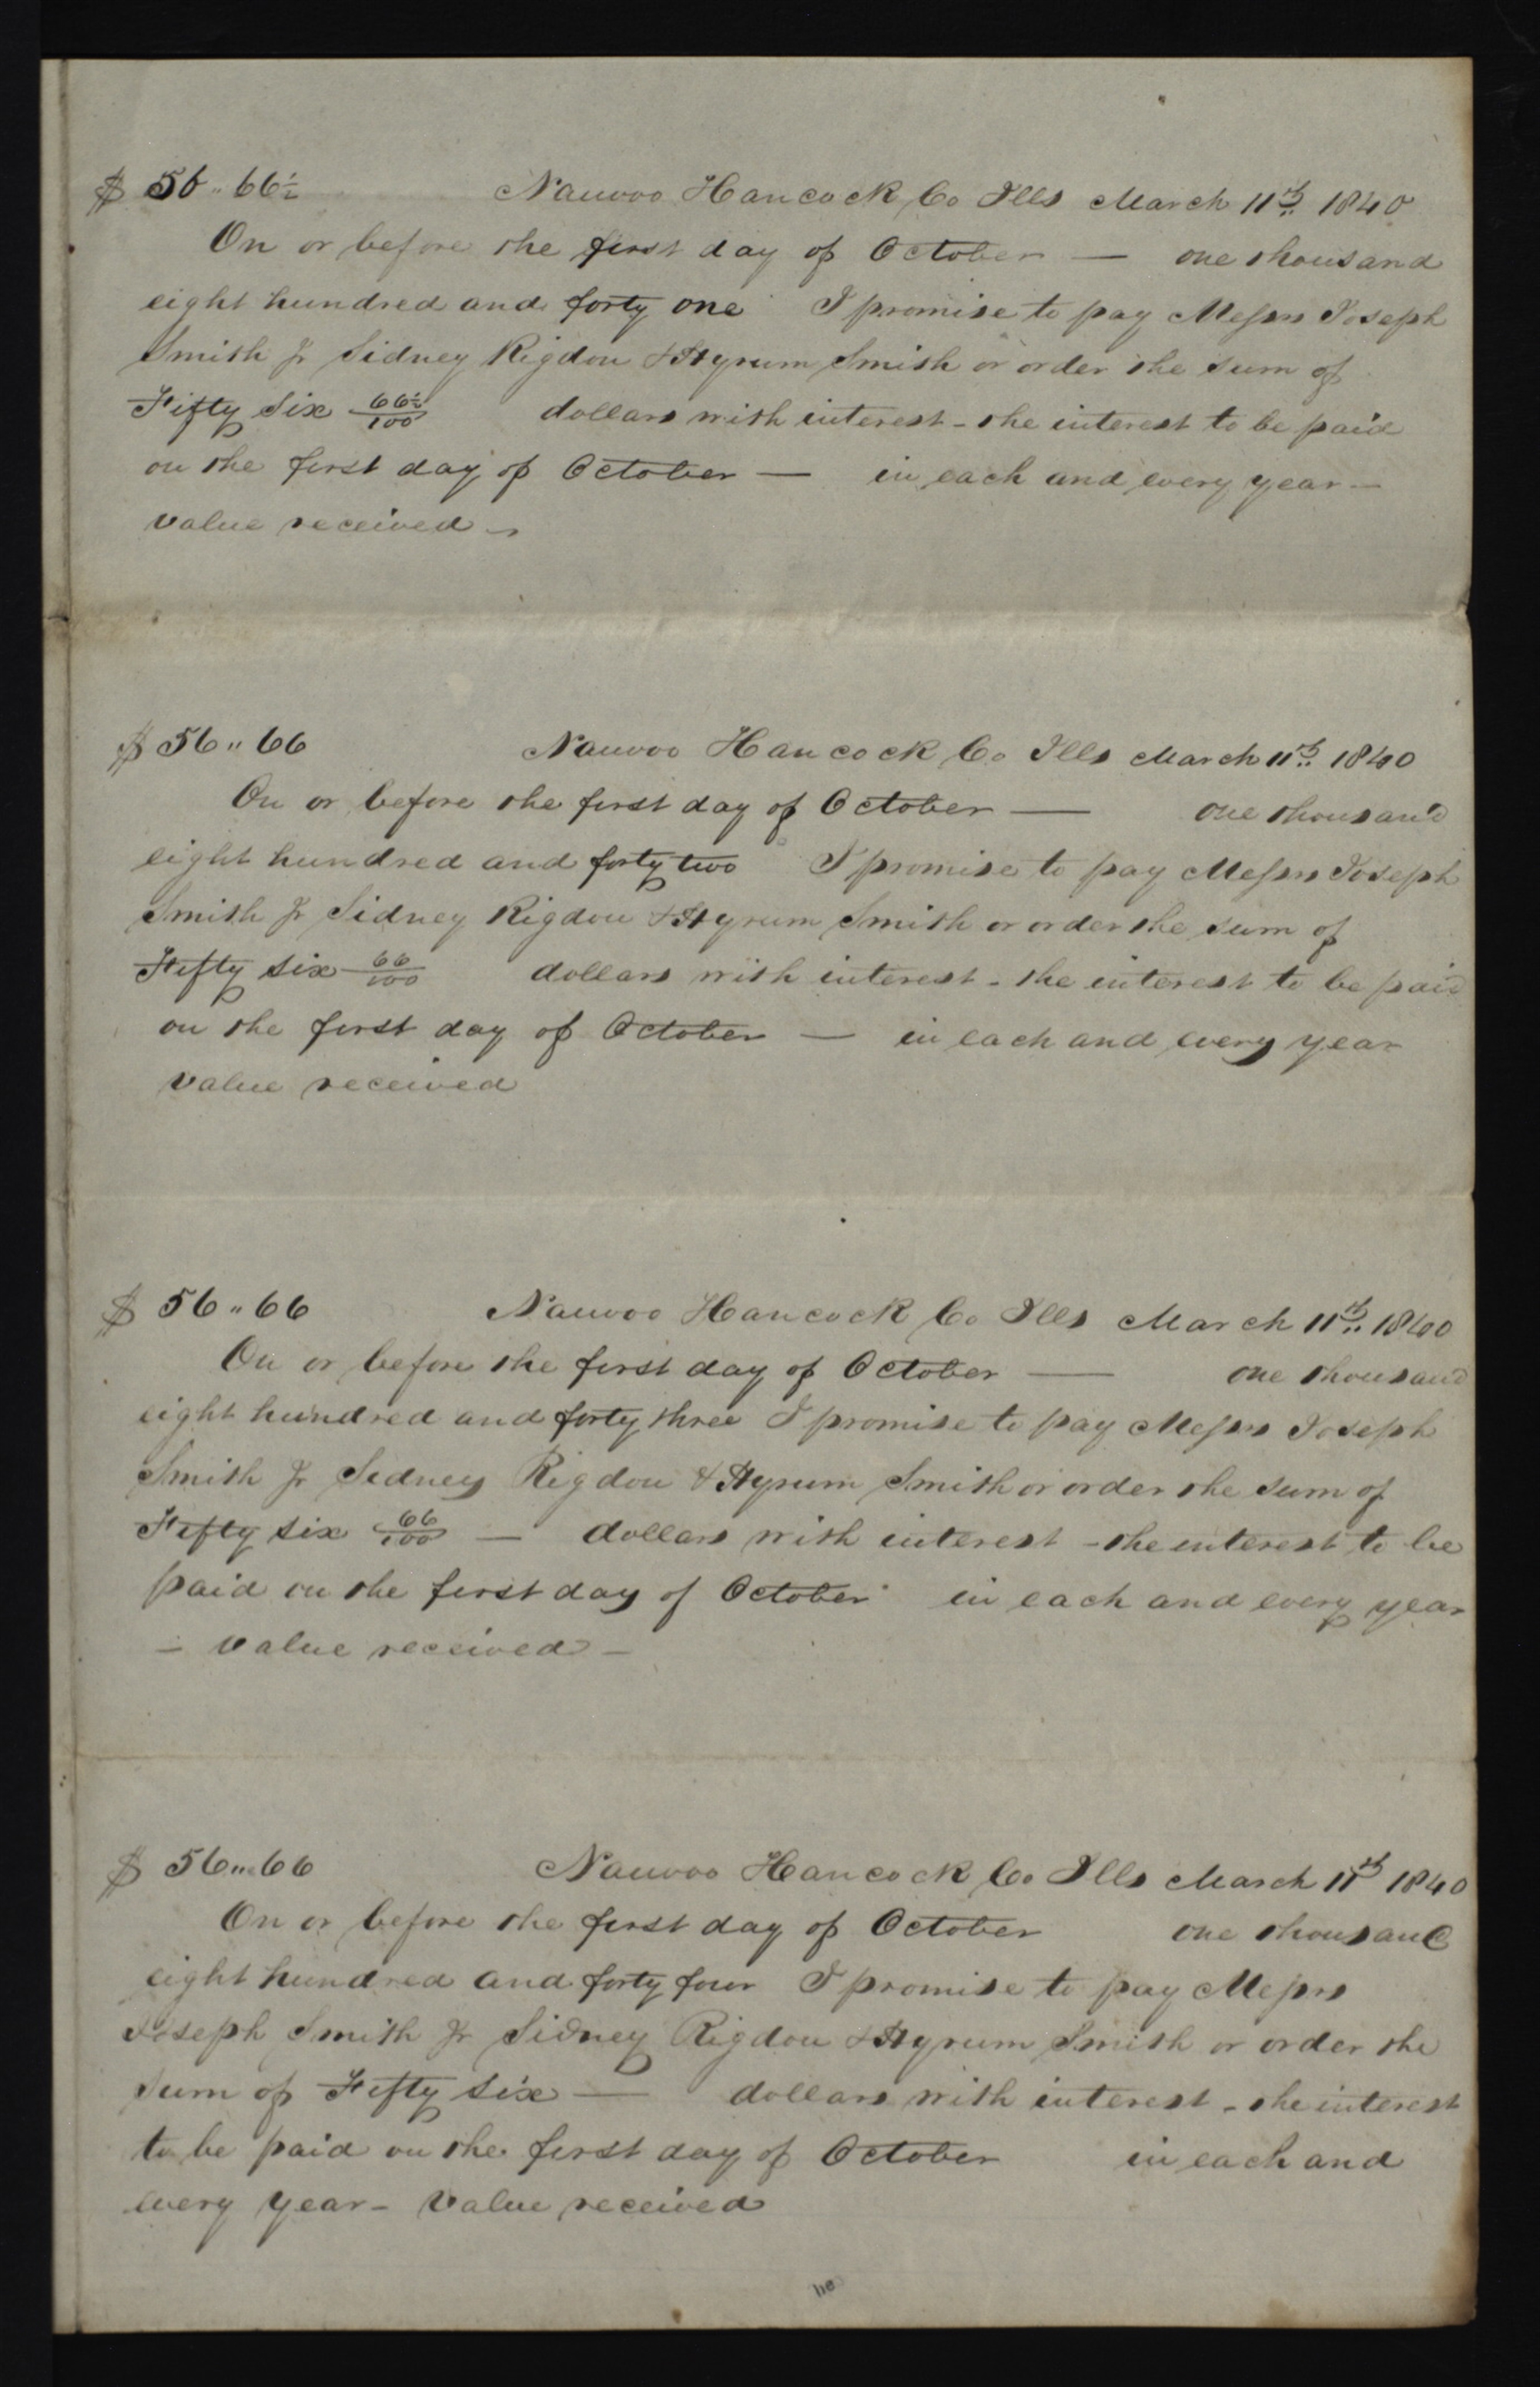 $ 56.. 66½ Nauvoo Hancock Co Ills March 11th 1840
On or before the first day of October — one thousand
eight hundred and forty one I promise to pay Messrs Joseph
Smith Jr Sidney Rigdon & Hyrum Smith or order the sum of
Fifty Six 66½/100 dollars with interest - the interest to be paid
on the first day of October — in each and every year —
value received —
$ 56.. 66 Nauvoo Hancock Co Ills March 11th 1840
On or before the first day of October — one thousand
eight hundred and forty two I promise to pay Messrs Joseph
Smith Jr Sidney Rigdon & Hyrum Smith or order the sum of
Fifty six 66/100 dollars with interest - the interest to be paid
on the first day of October — in each and every year
value received
$ 56.. 66 Nauvoo Hancock Co Ills March 11th 1840
On or before the first day of October — one thousand
eight hundred and forty three I promise to pay Messrs Joseph
Smith Jr Sidney Rigdon & Hyrum Smith or order the sum of
Fifty six 66/100 — dollars with interest - the interest to be
paid on the first day of October in each and every year
— value received —
$ 56....66 Nauvoo Hancock Co Ills March 11th 1840
On or before the first day of October one thousand
eight hundred and forty four I promise to pay Messrs
Joseph Smith Jr Sidney Rigdon & Hyrum Smith or order the
sum of Fifty six — dollars with interest - the interest
to be paid on the first day of October in each and
every year - value received